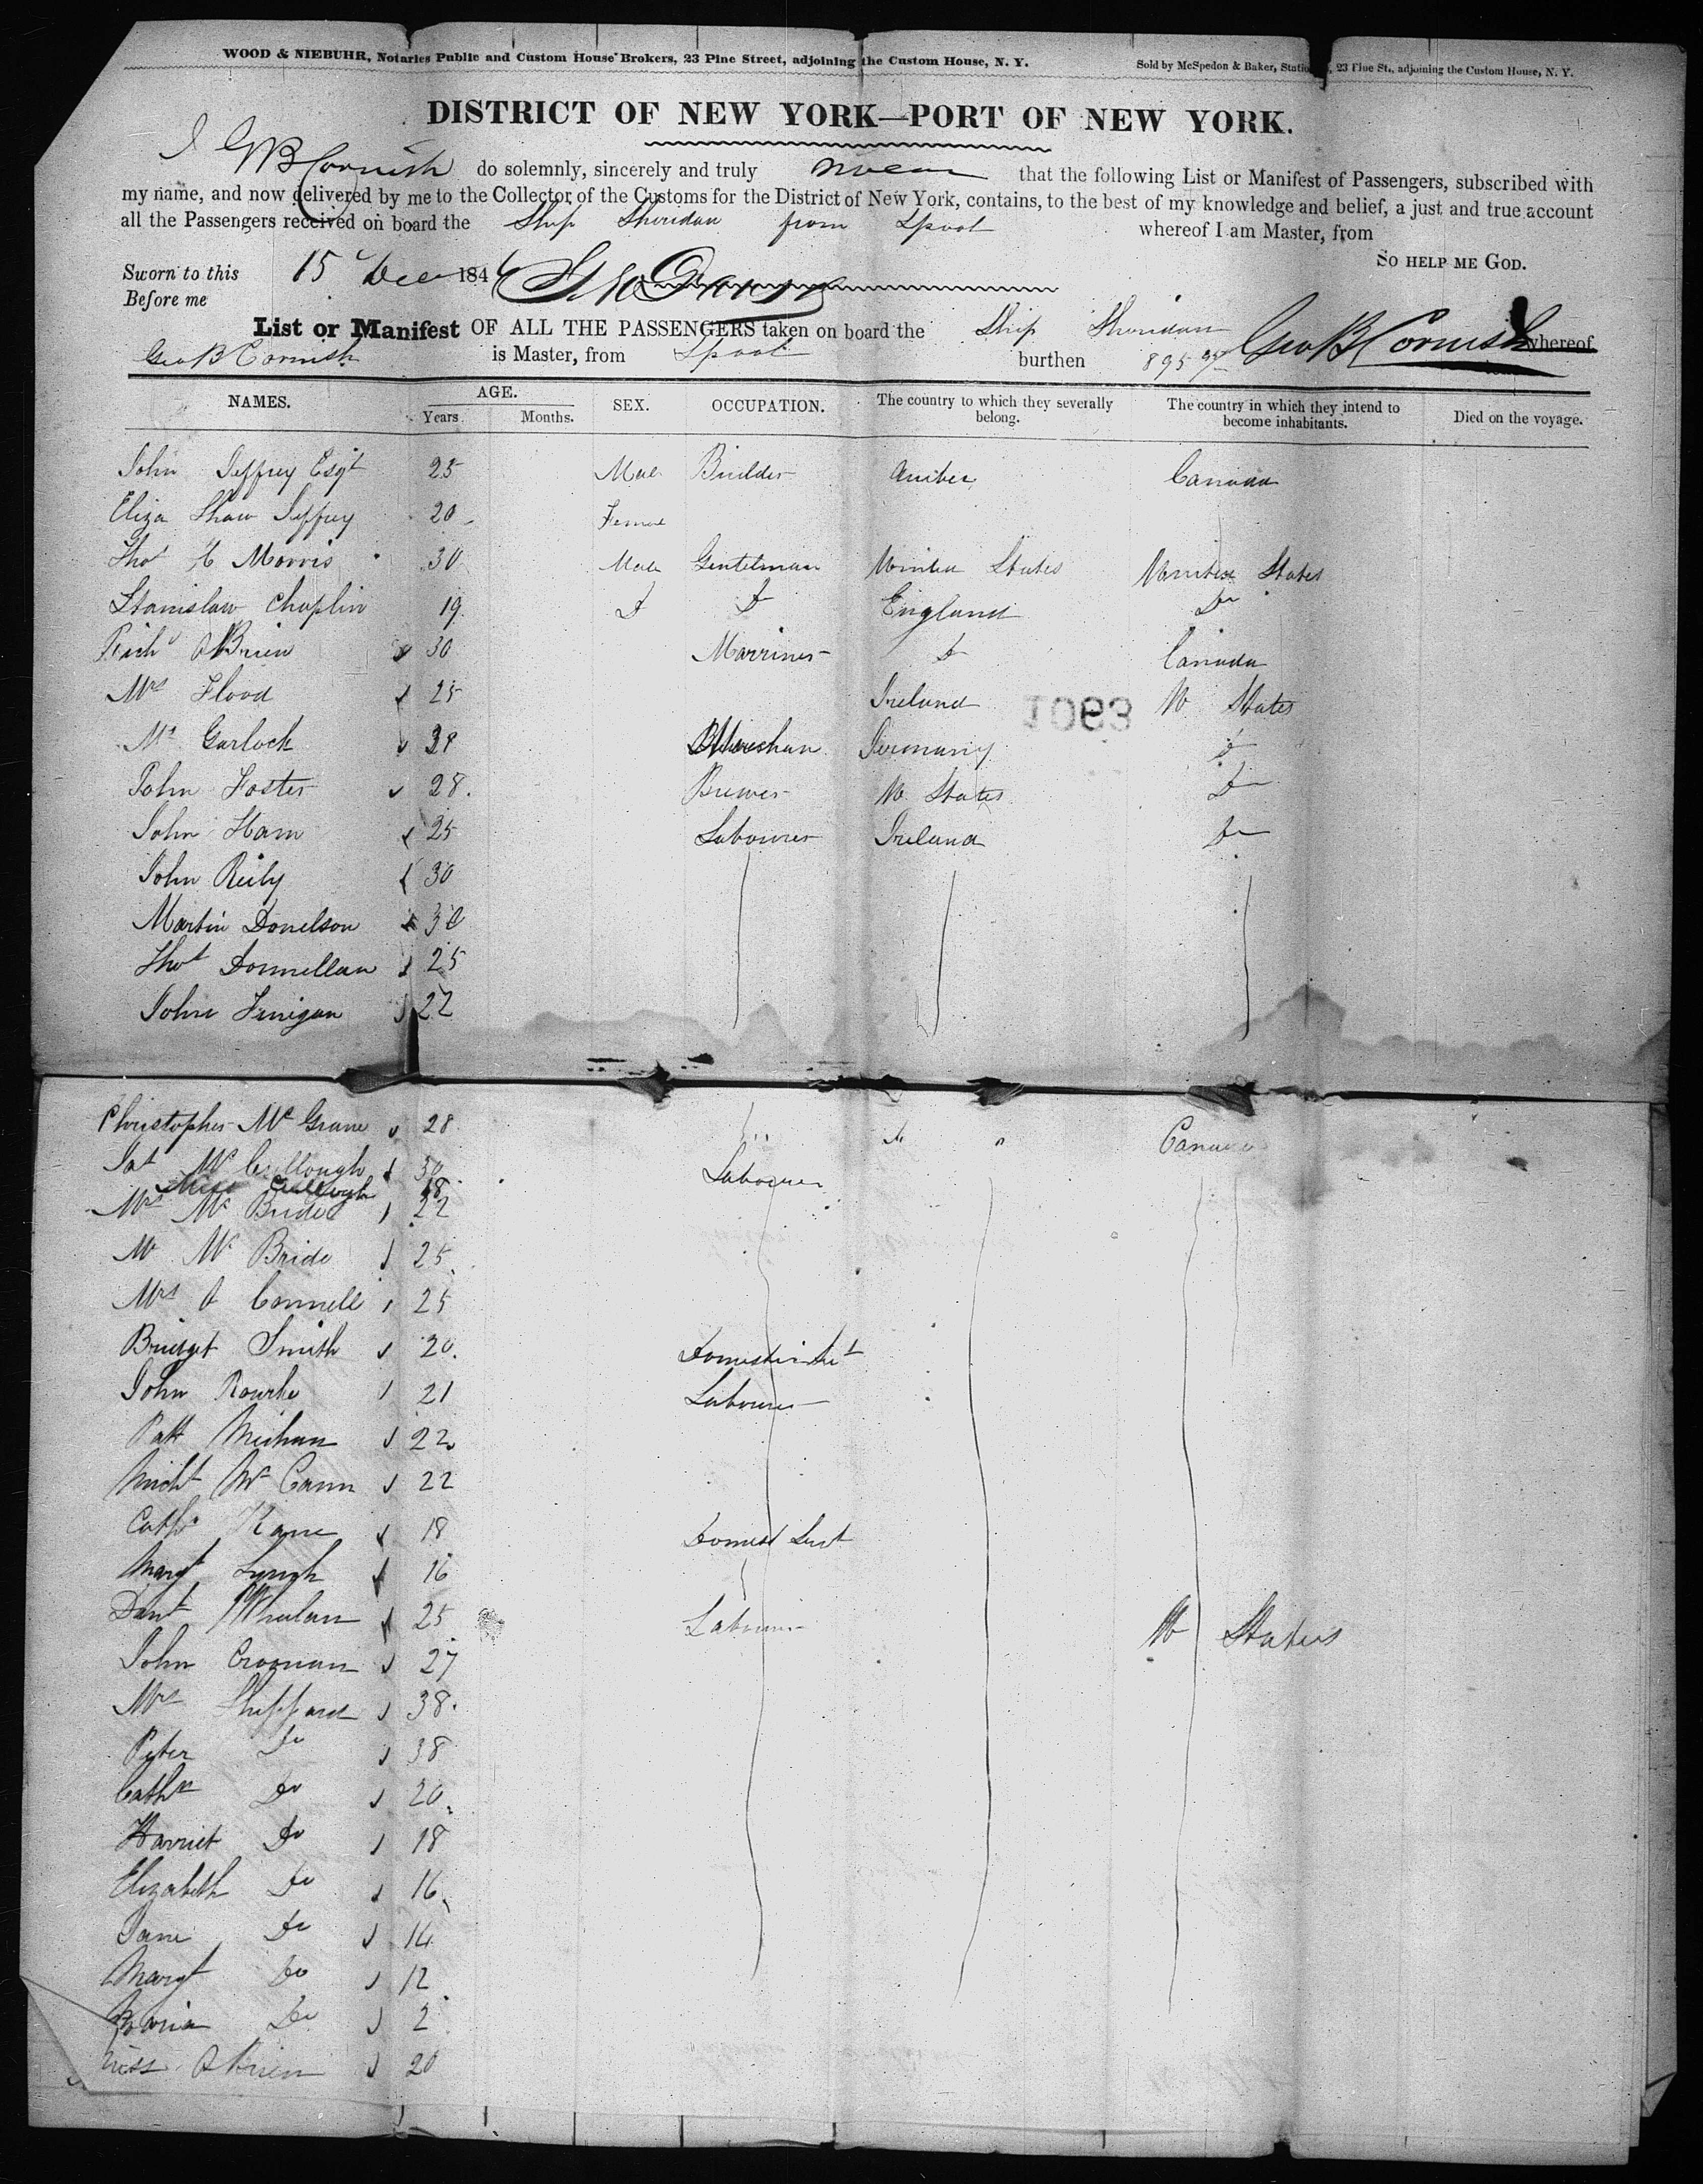 WOOD & NIEBUHR, Notaries Public and Custom House Brokers, 23 Pine Street, adjoining the Custom House, N. Y.
Sold by McSpedon & Baker, Statio 23 Pine St., adjoining the Custom House, N. Y.
DISTRICT OF NEW YORK—PORT OF NEW YORK.
I G B Cornish do solemnly, sincerely and truly swear that the following List or Manifest of Passengers, subscribed with
my name, and now delivered by me to the Collector of the Customs for the District of New York, contains, to the best of my knowledge and belief, a just and true account
all the Passengers received on board the Ship Sheridan from Lpool whereof I am Master, from
SO HELP ME GOD.
Sworn to this 15 Dec 1846
Before me
List or Manifest OF ALL THE PASSENGERS taken on board the Ship Sheridan whereof
Geo B Cornish is Master, from Lpool burthen 895 95 Geo B Cornish
NAMES. AGE. Years. Months. SEX. OCCUPATION. The country to which they severally belong. The country in which they intend to become inhabitants. Died on the voyage.
John Jeffrey Esqr 25 Male Builder Canada
Eliza Shaw Jeffrey 20 Female
Thos Morris 30 Male Gentelman United States United States
Stanislaw Chaplin 19 D D England Do
Richd OBrien 30 Marriner D Canada
Mrs Flood 25 Ireland U States
1083
Mr Garlock 38 Germany D
John Foster 28 Brewer U States Do
John Ham 25 Labourer Ireland Do
John Reily 30
Martin Donelson 30
Thos Donnellan 25
John Finigan 22
Christopher Mc Grane 28 Canada
Pat Mc Cullough 30 Labourer
Miss Cullough 18
Mrs Mc Bride 22
Mr Mc Bride 25
Mrs O Connell 25
Bridget Smith 20 Domestic Sert
John Rourke 21 Labourer
Patt Mehan 22
Michl Mc Cann 22
Cathe Kane 18 Domest Sert
Margt Lynch 16
Danl Whelan 25 Labourer U States
John Croonan 27
Mrs Sheppard 38
Peter Do 38
Cathn Do 20
Harriet Do 18
Elizabeth Do 16
Jane Do 14
Margt Do 12
Maria Do 2
Miss O Brien 20